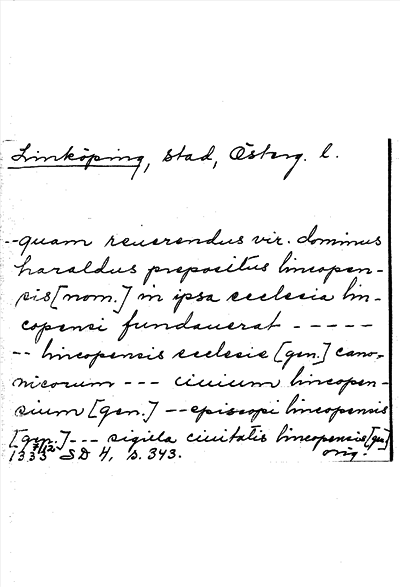 Linköping, stad, Österg. l.
--quam reuerendus vir. dominus
haraldus prepositus lincopen-
sis [nom.] in ipsa ecclesia lin-
copensi fundauerat -----
-- lincopensis ecclesie [gen.] cano-
nicorum --- ciuium lincopen-
sium [gen.] -- episcopi lincopensis
[gen.] --- sigilla ciuitatis lincopensis [gen.]
1333 7/12 SD 4, s. 343. orig.